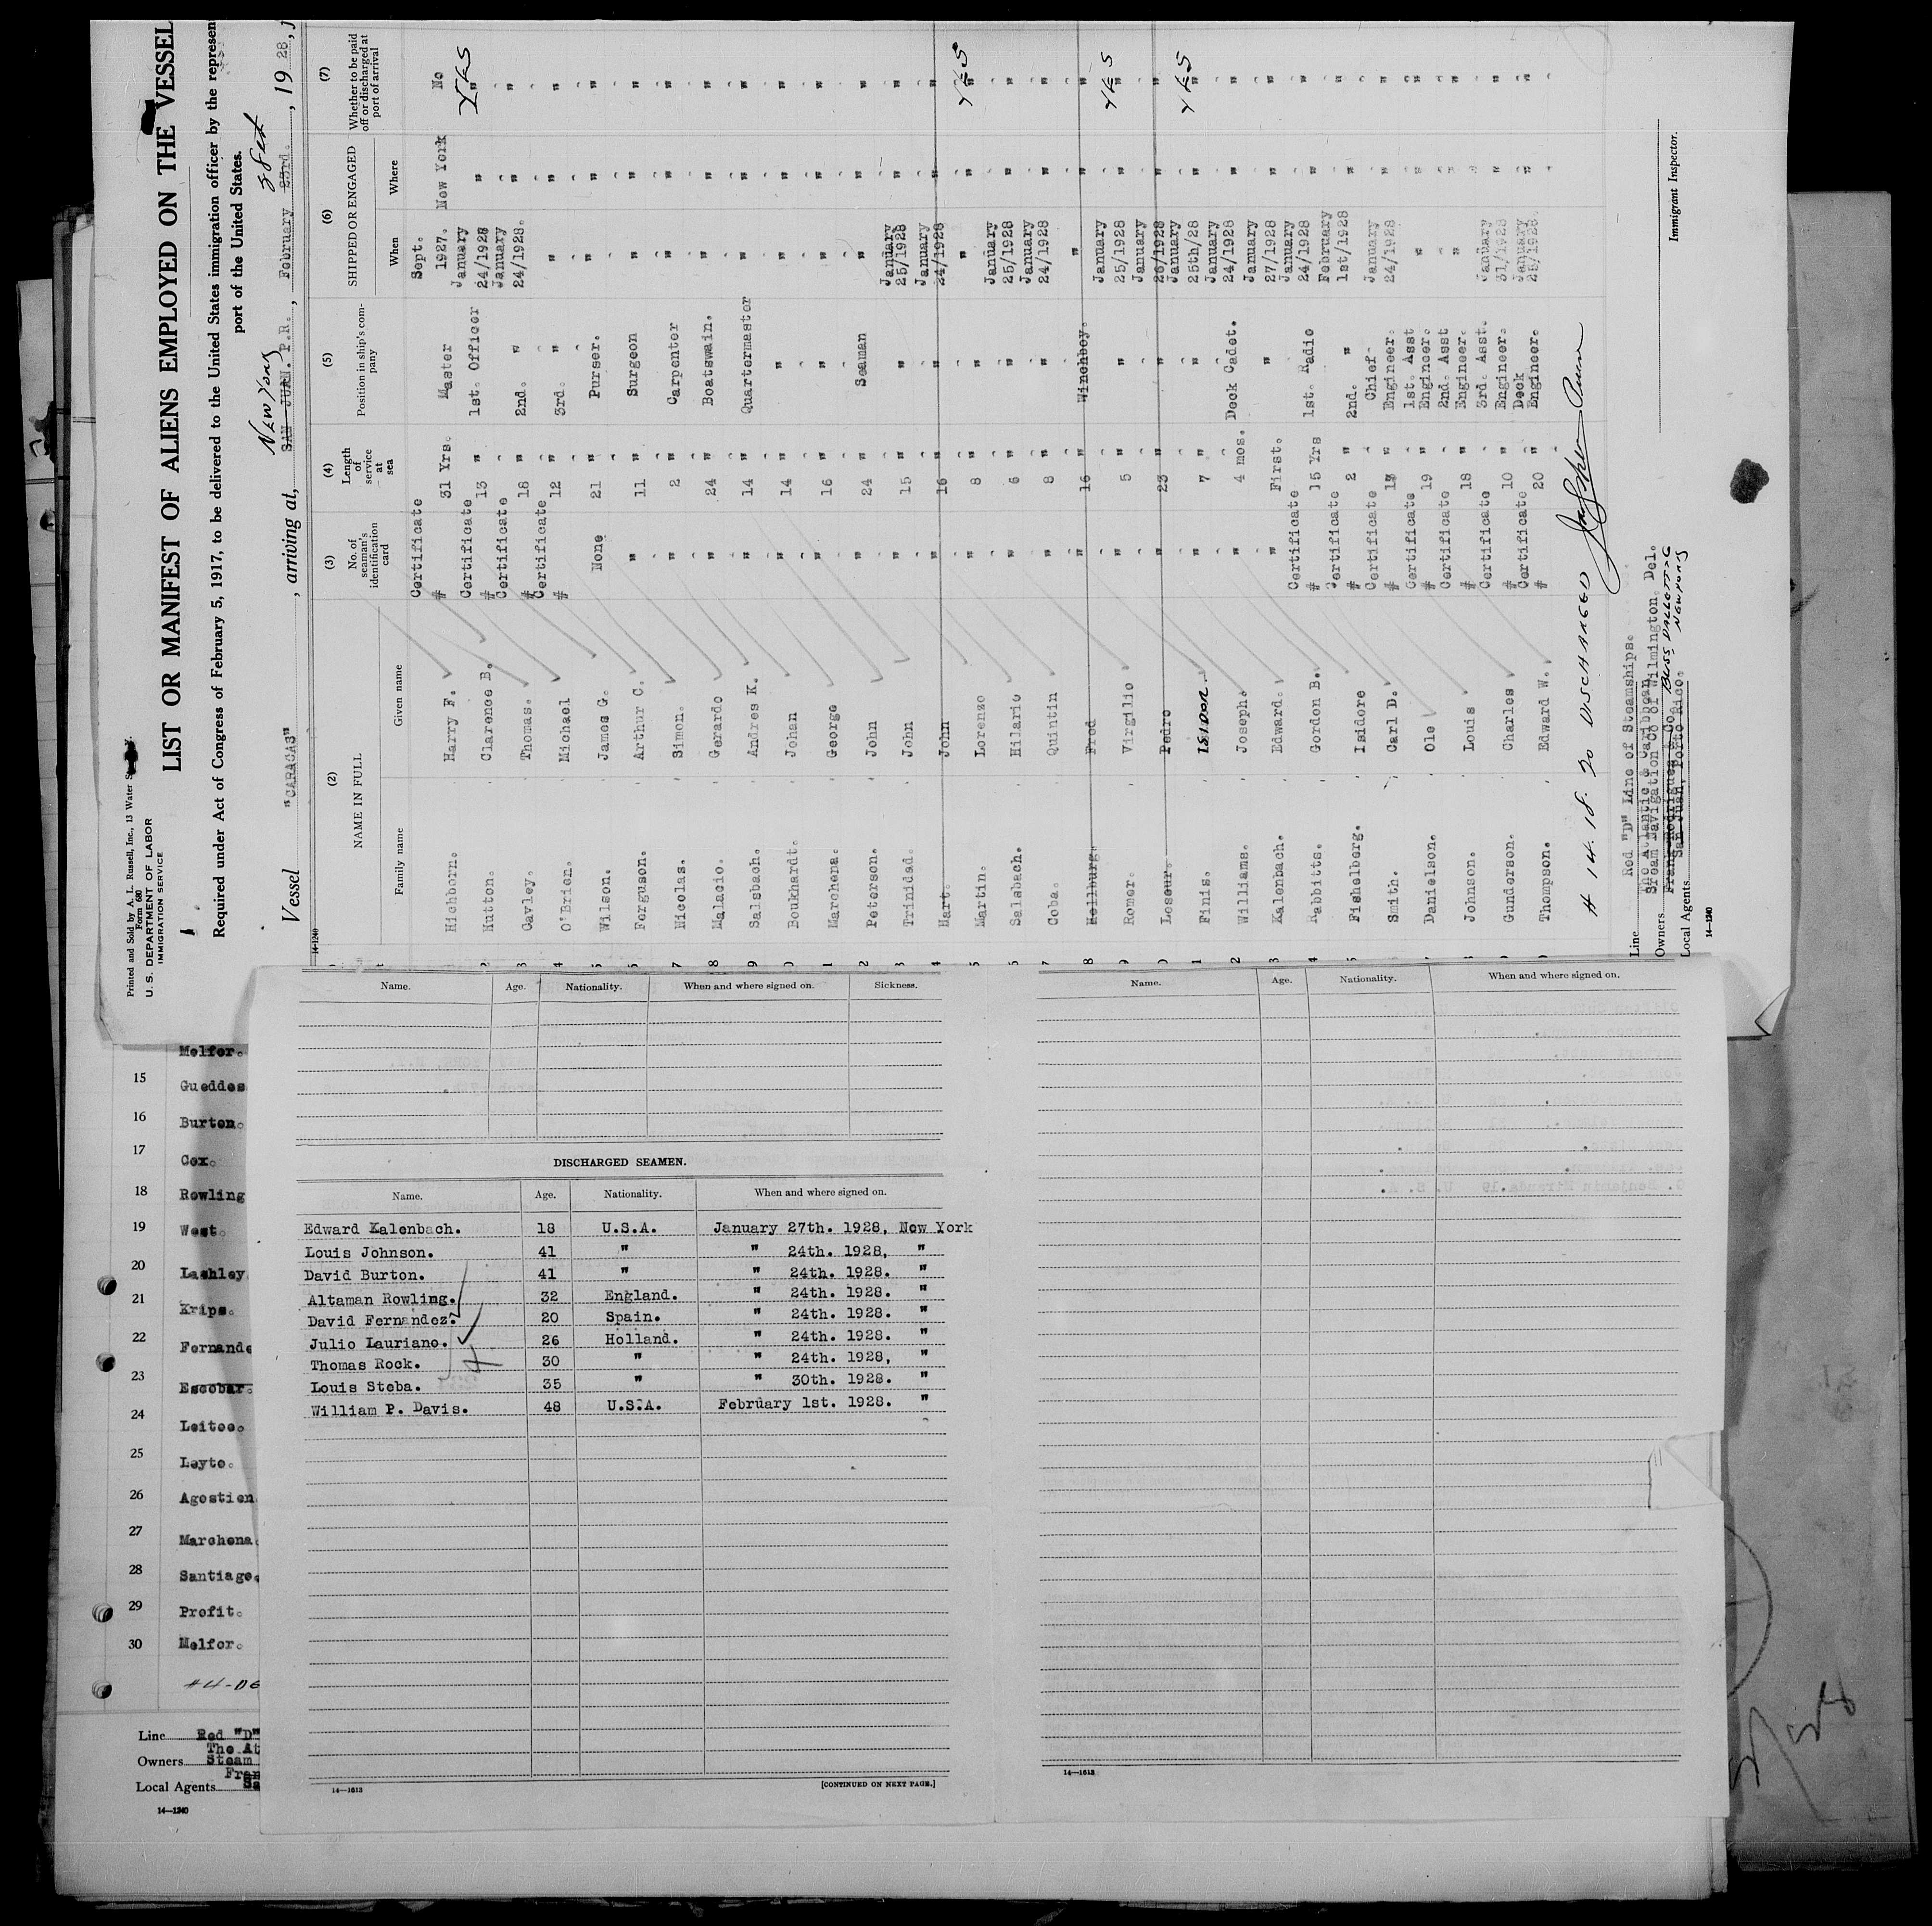 Printed and Sold by A. L. Russell, Inc., 13 Water
Form 680
U. S. DEPARTMENT OF LABOR
IMMIGRATION SERVICE
LIST OR MANIFEST OF ALIENS EMPLOYED ON THE VESSEL
Required under Act of Congress of February 5, 1917, to be delivered to the United States immigration officer by the represen
port of the United States.
New York 28th
Vessel "CARACAS", arriving at, SAN JUAN. P.R., February 23rd., 1928,
14-1240
(2) (3) (4) (5) (6) (7)
NAME IN FULL No. of seaman's identification card Length of service at sea Position in ship's company SHIPPED OR ENGAGED Whether to be paid off or discharged at port of arrival
Family name Given name When Where
Hichborn. Harry F. Certificate # 31 Yrs. Master Sept. 1927. New York No
2 Hutton. Clarence B. Certificate # 13 " 1st. Officer January 24/1928 " " YES
3 Gavley. Thomas. Certificate # 18 " 2nd. " January 24/1928. " "
4 O'Brien. Michael Certificate # 12 " 3rd. " " " "
5 Wilson. James G. None 21 " Purser. " " "
6 Ferguson. Arthur C. " 11 " Surgeon " " "
7 Nicolas. Simon. " 2 " Carpenter " " "
8 Malacio. Gerardo " 24 " Boatswain. " " "
9 Salsbach. Andres K. " 14 " Quartermaster " " "
0 Boukhardt. Johan " 14 " " " " "
1 Marchena. George " 16 " " " " "
2 Peterson. John " 24 " Seaman " " "
3 Trinidad. John " 15 " " January 25/1928 " "
4 Hart. John " 16 " " January 24/1928 " "
5 Martin. Lorenzo " 8 " " " " " YES
6 Salsbach. Hilario " 6 " " January 25/1928 " "
7 Coba. Quintin " 8 " " January 24/1928 " "
8 Hellburg. Fred " 16 " Winchboy. " " "
9 Romer. Virgilio " 5 " " January 25/1928 " " YES
0 Leseur. Pedro " 23 " " January 26/1928 " "
1 Finis. ISIDOR " 7 " " January 25th/28 " " YES
2 Williams. Joseph. " 4 mos. Deck Cadet. January 24/1928 " "
3 Kalenbach. Edward. " First. " January 27/1928 " "
4 Rabbitts. Gordon B. Certificate # 15 Yrs 1st. Radio January 24/1928 " "
5 Fishelberg. Isidore Certificate # 2 " 2nd. " February 1st/1928 " "
Smith. Carl D. Certificate # " Chief Engineer. January 24/1928 " "
Danielson. Ole Certificate # 19 " 1st. Asst Engineer. " " "
8 Johnson. Louis Certificate # 18 " 2nd. Asst Engineer. " " "
Gunderson. Charles Certificate # 10 " 3rd. Asst. Engineer. January 31/1928 " "
Thompson. Edward W. Certificate # 20 " Deck Engineer. January 25/1928 " "
# 14. 18. 20 DISCHARGED
Line Red "D" Line of Steamships.
The Atlantic & Caribbean
Owners Steam Navigation Co of Wilmington. Del.
Frank Rodriguez & Co. BLISS DALLETT & Co
Local Agents San Juan, Porto Rico. NEW YORK
14-1240
Immigrant Inspector.
Name. Age. Nationality. When and where signed on. Sickness.
DISCHARGED SEAMEN.
Name. Age. Nationality. When and where signed on.
Edward Kalenbach. 18 U.S.A. January 27th. 1928, New York
Louis Johnson. 41 " " 24th. 1928, "
David Burton. 41 " " 24th. 1928. "
Altaman Rowling. 32 England. " 24th. 1928. "
David Fernandez. 20 Spain. " 24th. 1928. "
Julio Lauriano. 26 Holland. " 24th. 1928. "
Thomas Rock. 30 " " 24th. 1928, "
Louis Steba. 35 " " 30th. 1928. "
William P. Davis. 48 U.S.A. February 1st. 1928. "
14—1613
[CONTINUED ON NEXT PAGE.]
Name. Age. Nationality. When and where signed on.
14—1613
Melfor.
15 Gueddes
16 Burton.
17 Cox.
18 Rowling
19 West.
20 Lashley
21 Krips.
22 Fernande
23 Escobar.
24 Leitee.
25 Leyto.
26 Agostien
27 Marchena
28 Santiago.
29 Profit.
30 Melfor.
#4-DE
Line Red "D"
The At
Owners Steam
Fran
Local Agents Sa
14—1240